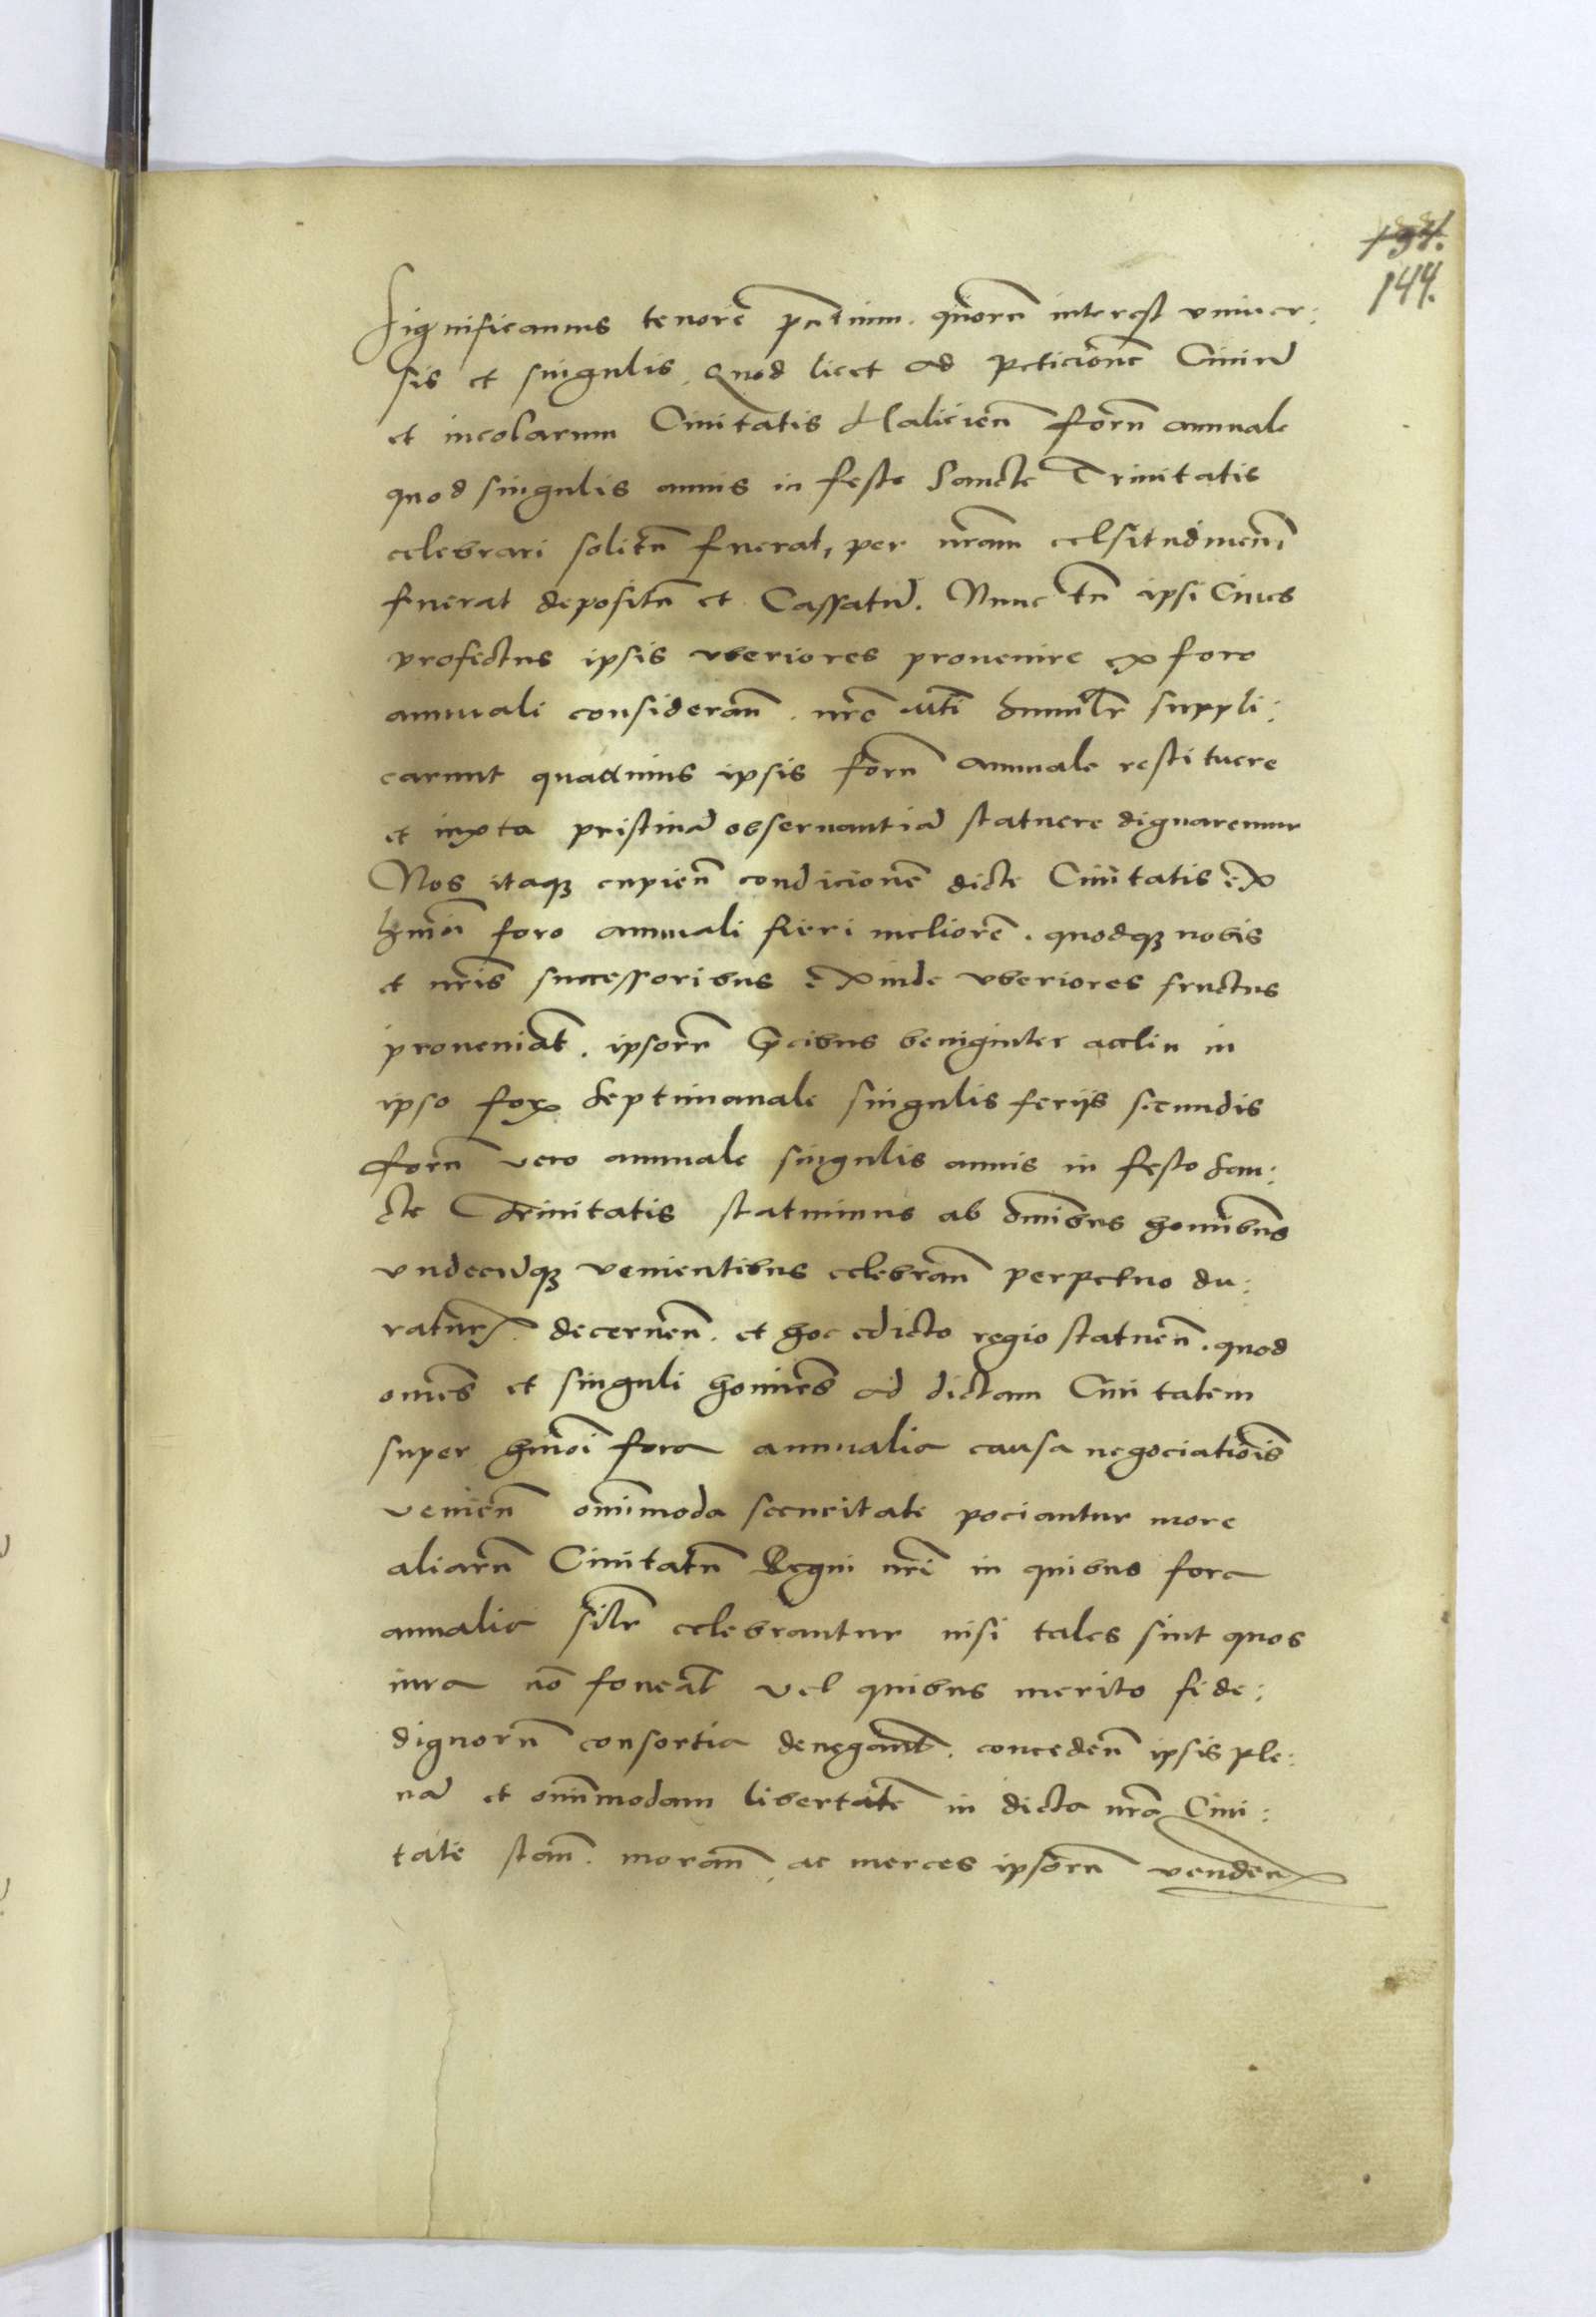 131.
144.
Significamus tenorē pñtium. quorū interest vniuer:
sis et singulis, Quod licet ad peticionē Ciuiū
et incolarum Ciuitatis Haliciēn forū annuale
quod singulis annis in festo Sancte Trinitatis
celebrari solitū fuerat, per nrām celsitudinem
fuerat depositū et Cassatū. Nunc tñ ipsi Ciues
profectus ipsis vberiores prouenire ex foro
annuali considerañ. nrē Mti humilr suppli:
carunt quatinus ipsis forū annuale restituere
et iuxta pristinā obseruantiā statuere dignaremur
Nos itaqȝ cupieñ condicionē dicte Ciuitatis ex
hmōi foro annuali fieri meliorē. quodqȝ nobis
et nrīs successoribus exinde vberiores fructus
proueniāt. ipsorū p̄cibus benigniter acclin in
ipso forꝝ Septimanale singulis ferijs secundis
forū vero annuale singulis annis in festo San:
cte Trinitatis statuimus ab oīnibus hominibus
vndecūqȝ venientibus celebrañ perpetuo du:
raturꝝ. decerneñ. et hoc edicto regio statueñ. quod
omēs et singuli homīēs ad dictam Ciuitatem
super hmōi fora annualia causa negociatiōis
venieñ omnīmoda securitate pociantur more
aliarū Ciuitatū Regni nrī in quibus fora
annalia silr celebrantur nisi tales sint quos
iura nō foueāt vel quibus merito fide:
dignorū consortia denegant. concedeñ ipsis ple:
nā et omnīmodam libertatē in dicta nrā Ciui:
tate stañ. morañ, ac merces ipsorū vendeñ